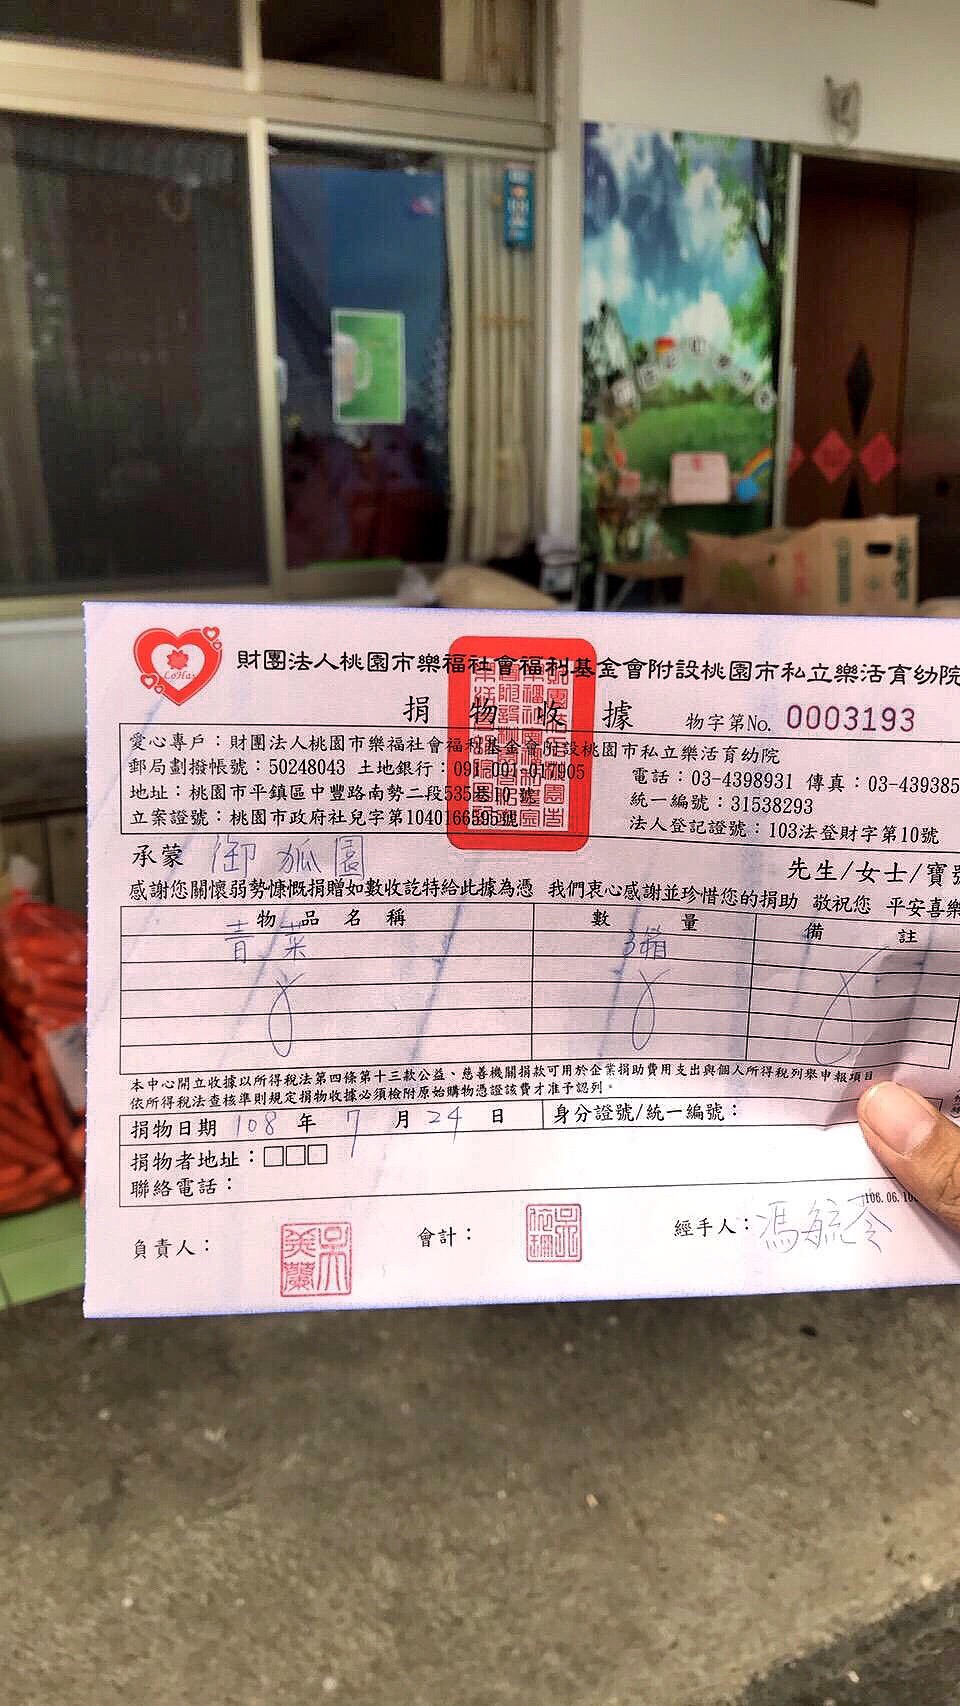 LoHas
財團法人桃園市樂福社會福利基金會附設桃園市私立樂活育幼院
捐物收據
物字第No. 0003193
愛心專戶：財團法人桃園市樂福社會福利基金會附設桃園市私立樂活育幼院
郵局劃撥帳號：50248043 土地銀行：091-001-017005
電話：03-4398931 傳真：03-439385
地址：桃園市平鎮區中豐路南勢二段535巷10號
統一編號：31538293
立案證號：桃園市政府社兒字第1040166595號
法人登記證號：103法登財字第10號
承蒙 御狐園 先生/女士/寶號
感謝您關懷弱勢慷慨捐贈如數收訖特給此據為憑 我們衷心感謝並珍惜您的捐助 敬祝您 平安喜樂
物品名稱 數量 備註
青菜 3箱
本中心開立收據以所得稅法第四條第十三款公益、慈善機關捐款可用於企業捐助費用支出與個人所得稅列舉申報項目
依所得稅法查核準則規定捐物收據必須檢附原始購物憑證該費才准予認列。
捐物日期 108 年 7 月 24 日 身分證號/統一編號：
捐物者地址：□□□
聯絡電話：
106.06.10
負責人： 吳美蘭 會計： 經手人：馮毓苓